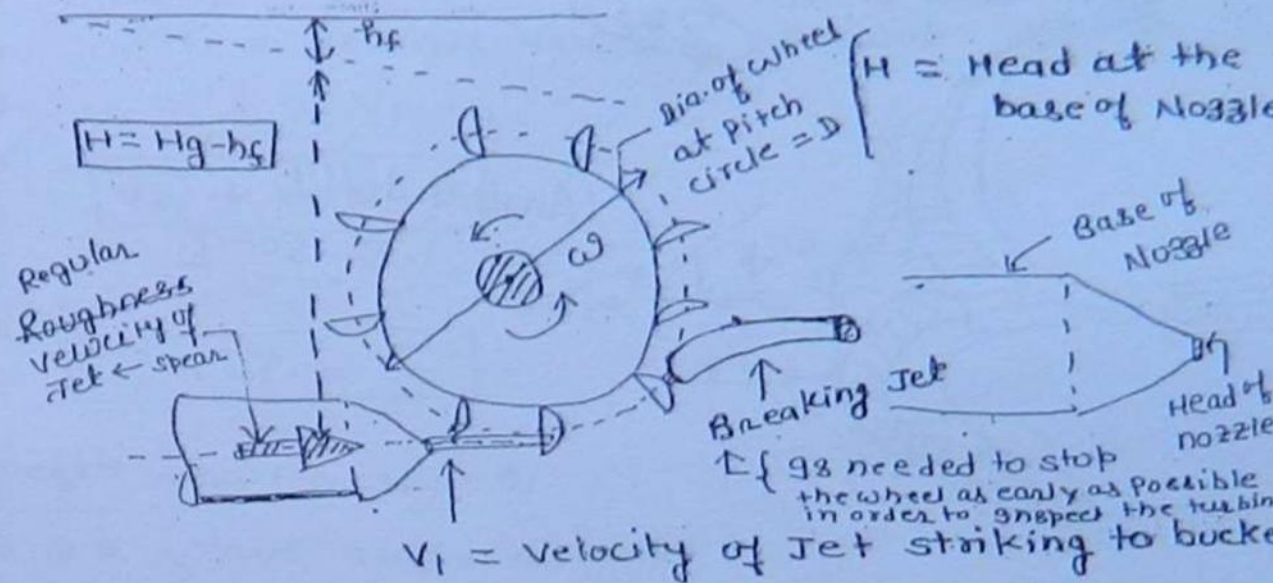 hf
H = Hg-hf
Dia. of wheel
at pitch
circle = D
H = Head at the
base of Nozzle
Regular
Roughness
velocity of
Jet ← spear
ω
Base of
Nozzle
Breaking Jet
Head of
nozzle
{ gs needed to stop
the wheel as early as possible
in order to gnspect the turbin
V1 = velocity of Jet striking to bucke